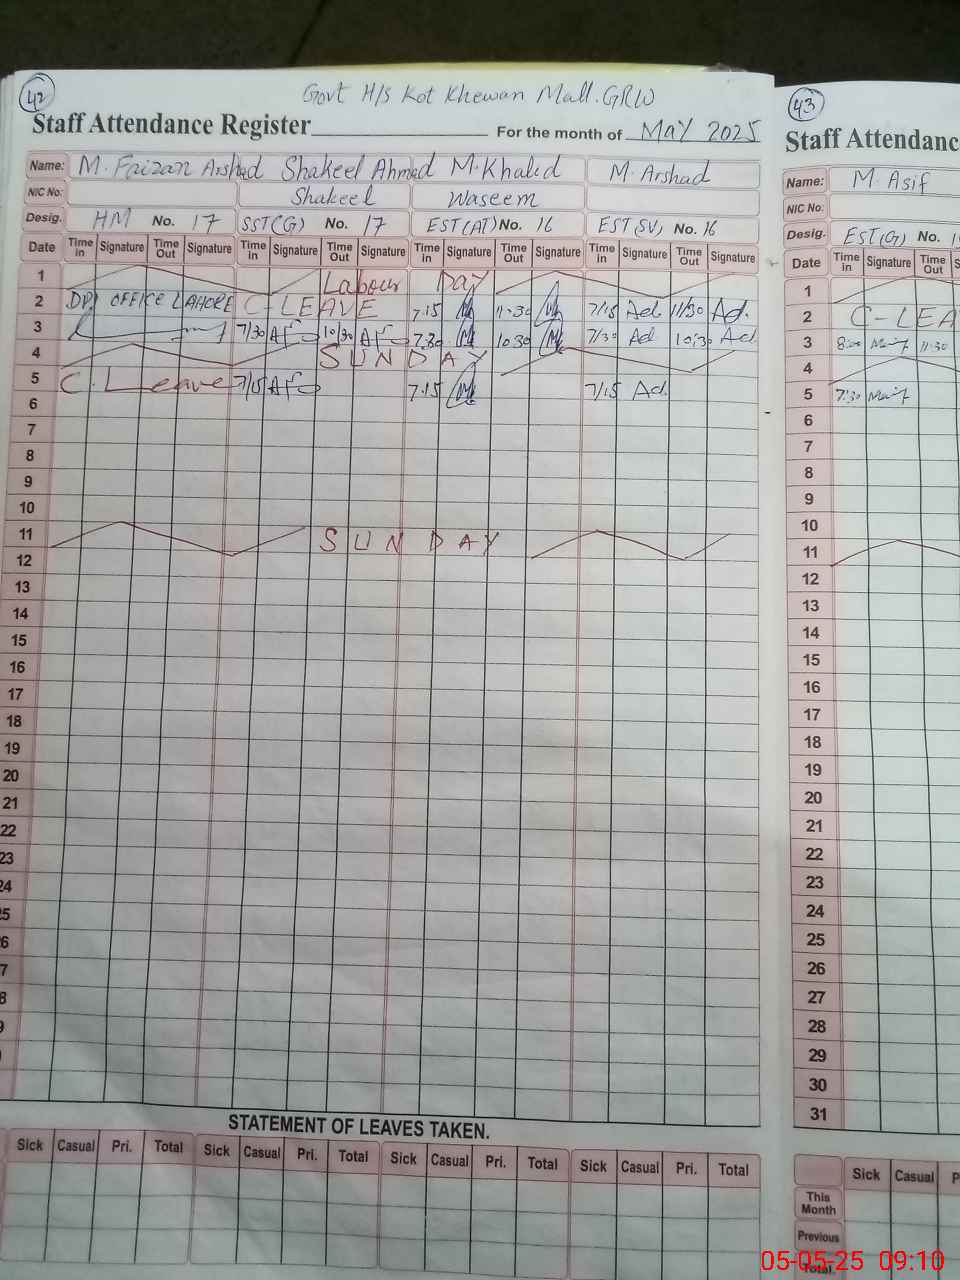 42
Govt H/S Kot Khewan Mall. GRW
Staff Attendance Register For the month of MAY 2025
Name: M. Faizan Arshad Shakeel Ahmed M. Khalid M. Arshad
NIC No: Shakeel Waseem
Desig. HM No. 17 SST(G) No. 17 EST(AT) No. 16 EST(SV) No. 16
Date Time In Signature Time Out Signature Time In Signature Time Out Signature Time In Signature Time Out Signature Time In Signature Time Out Signature
1 Labour DAY
2 DPI OFFICE LAHORE C-LEAVE 7.15 11.30 7/15 Ad 11/30 Ad.
3 7/30 10/30 7.30 10.30 7/30 Ad 10/30 Ad
4 SUNDAY
5 C. Leave 7/15 7.15 7/15 Ad.
6
7
8
9
10
11 SUNDAY
12
13
14
15
16
17
18
19
20
21
22
23
24
25
6
7
8
9
STATEMENT OF LEAVES TAKEN.
Sick Casual Pri. Total Sick Casual Pri. Total Sick Casual Pri. Total Sick Casual Pri. Total
43
Staff Attendanc
Name: M. Asif
NIC No:
Desig. EST(G) No. 1
Date Time In Signature Time Out S
1
2 C-LEA
3 8:00 11:30
4
5 7:30
6
7
8
9
10
11
12
13
14
15
16
17
18
19
20
21
22
23
24
25
26
27
28
29
30
31
Sick Casual P
This Month
Previous
Total
05-05-25 09:10